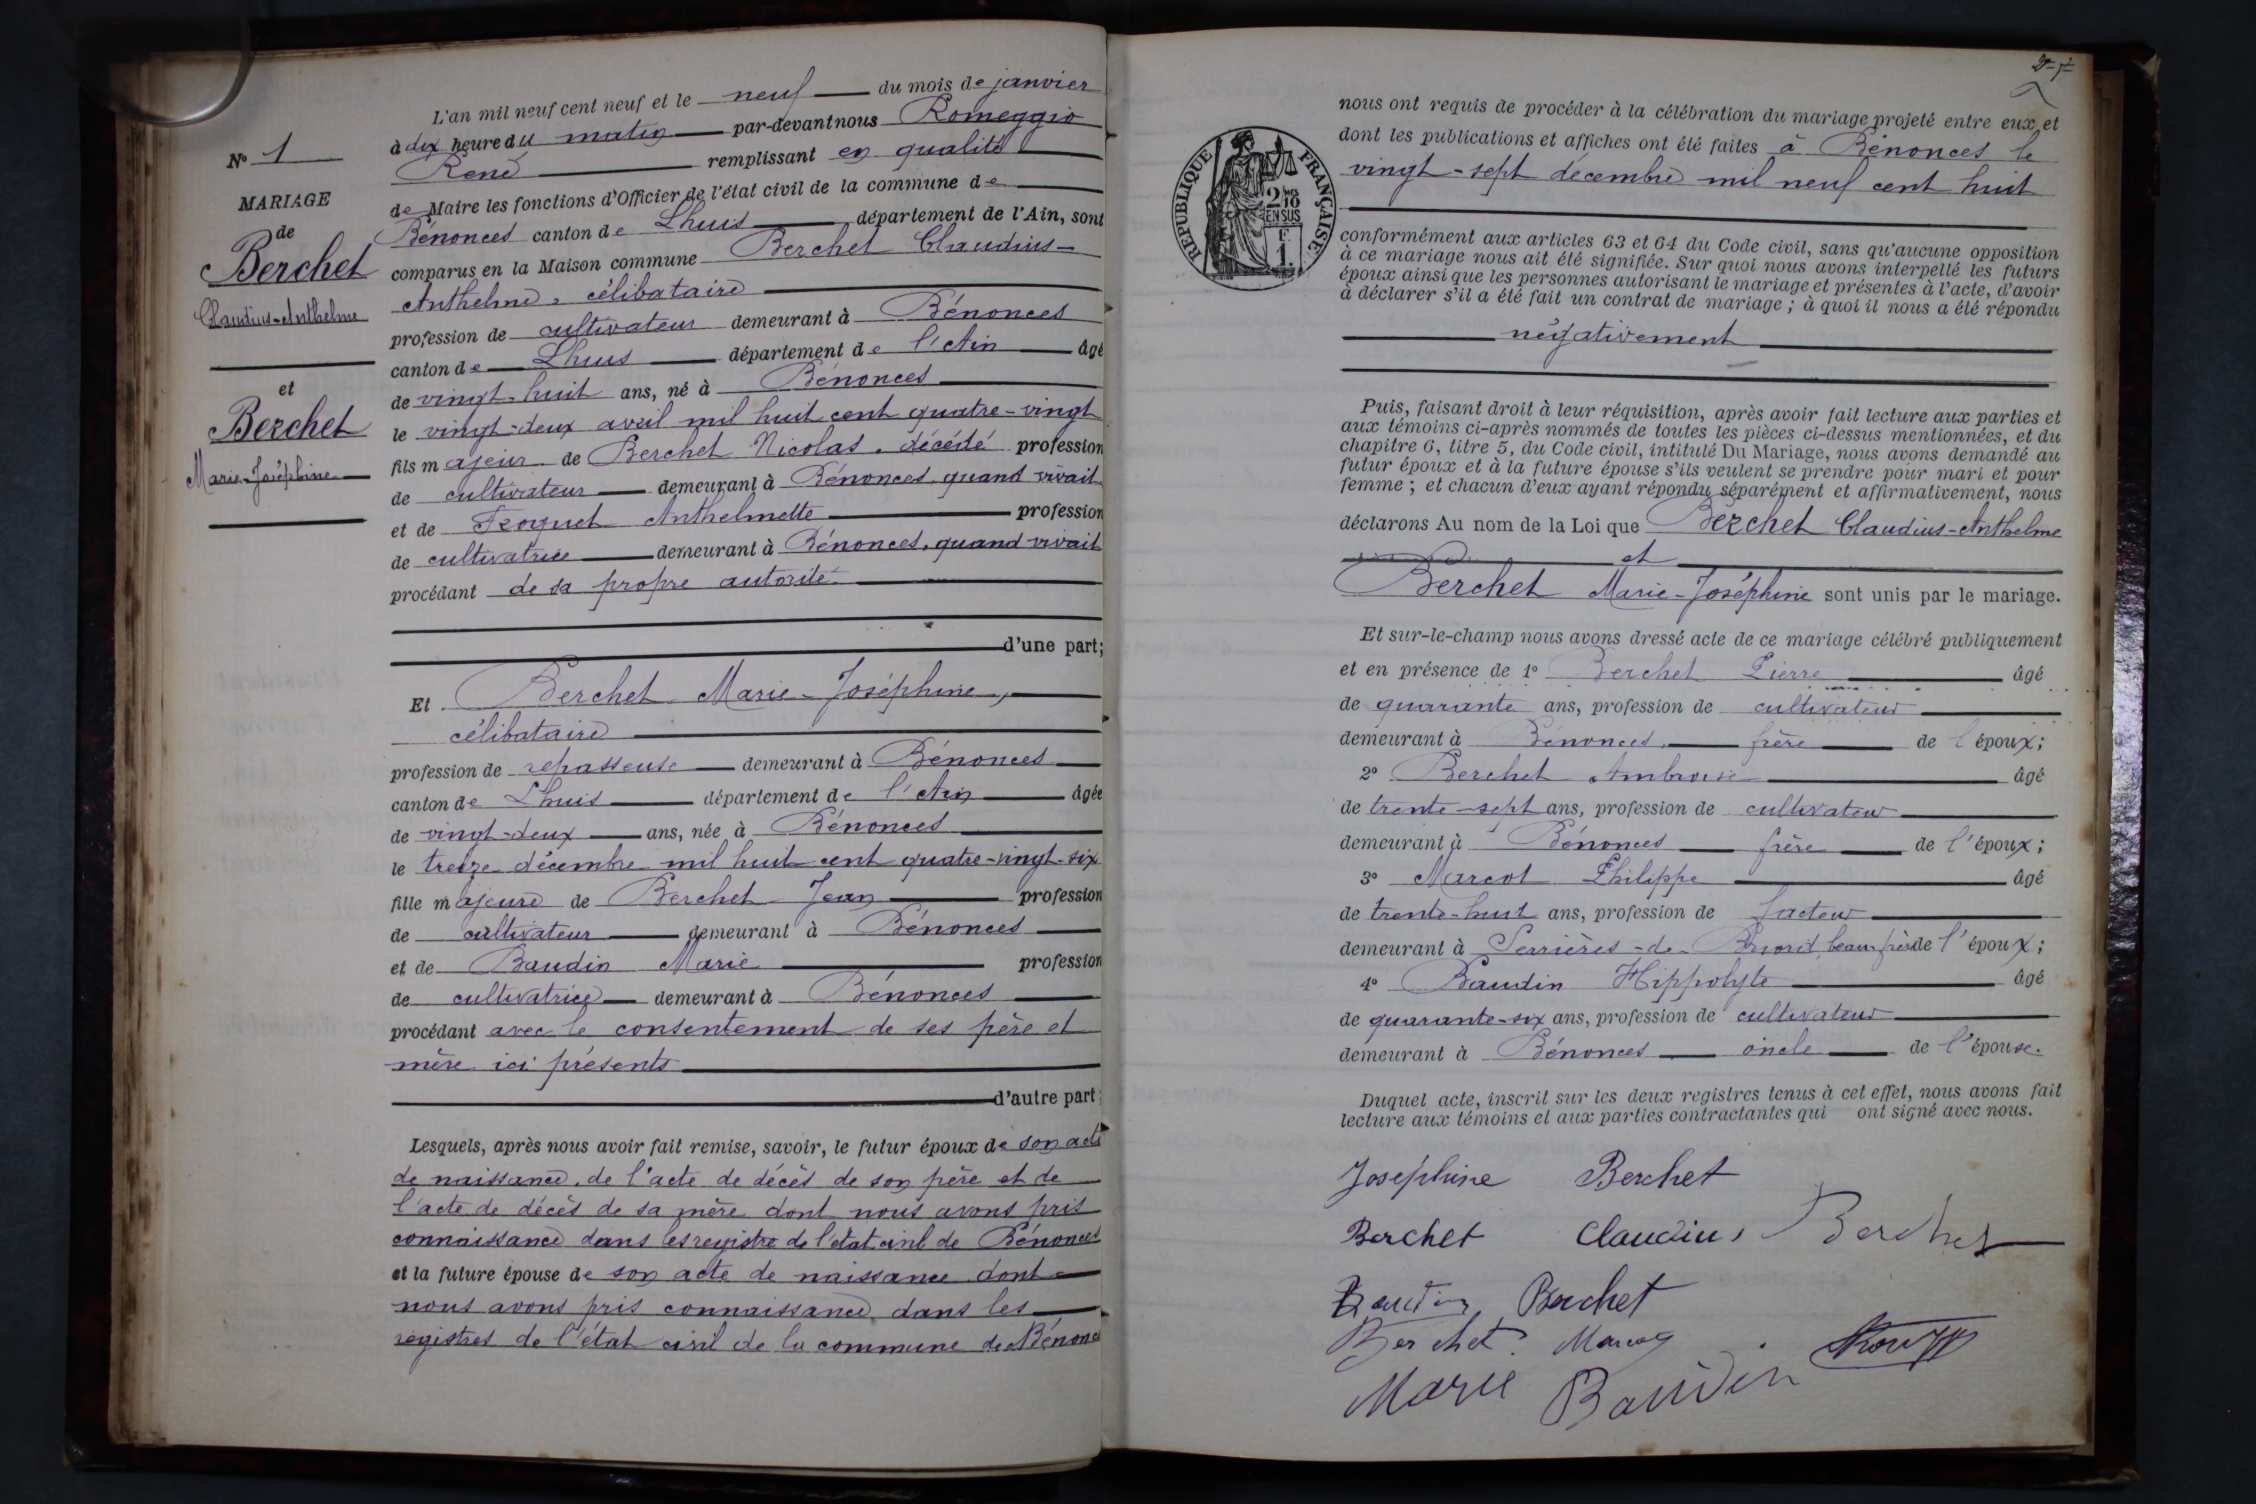 L'an mil neuf cent neuf et le neuf du mois de janvier
à dix heure du matin par-devant nous Romeggio
René remplissant en qualité
de Maire les fonctions d'Officier de l'état civil de la commune de
Bénonces canton de Lhuis département de l'Ain, sont
comparus en la Maison commune Berchet Claudius-
Anthelme, célibataire
profession de cultivateur demeurant à Bénonces
canton de Lhuis département de l'Ain âgé
de vingt-huit ans, né à Bénonces
le vingt-deux avril mil huit cent quatre-vingt
fils majeur de Berchet Nicolas, décédé profession
de cultivateur demeurant à Bénonces, quand vivait
et de Troquet Anthelmette profession
de cultivatrice demeurant à Bénonces, quand vivait
procédant de sa propre autorité
d'une part;
Et Berchet Marie-Joséphine,
célibataire
profession de repasseuse demeurant à Bénonces
canton de Lhuis département de l'Ain âgée
de vingt-deux ans, née à Bénonces
le treize décembre mil huit cent quatre-vingt-six
fille majeure de Berchet Jean profession
de cultivateur demeurant à Bénonces
et de Baudin Marie profession
de cultivatrice demeurant à Bénonces
procédant avec le consentement de ses père et
mère ici présents
d'autre part;
Lesquels, après nous avoir fait remise, savoir, le futur époux de son acte
de naissance, de l'acte de décès de son père et de
l'acte de décès de sa mère dont nous avons pris
connaissance dans les registre de l'état civil de Bénonces
et la future épouse de son acte de naissance dont
nous avons pris connaissance dans les
registres de l'état civil de la commune de Bénonces
N° 1
MARIAGE
de
Berchet
Claudius-Anthelme
et
Berchet
Marie-Joséphine
nous ont requis de procéder à la célébration du mariage projeté entre eux et
dont les publications et affiches ont été faites à Bénonces le
vingt-sept décembre mil neuf cent huit
RÉPUBLIQUE FRANÇAISE
2/10
EN SUS
1 F.
conformément aux articles 63 et 64 du Code civil, sans qu'aucune opposition
à ce mariage nous ait été signifiée. Sur quoi nous avons interpellé les futurs
époux ainsi que les personnes autorisant le mariage et présentes à l'acte, d'avoir
à déclarer s'il a été fait un contrat de mariage ; à quoi il nous a été répondu
négativement
Puis, faisant droit à leur réquisition, après avoir fait lecture aux parties et
aux témoins ci-après nommés de toutes les pièces ci-dessus mentionnées, et du
chapitre 6, titre 5, du Code civil, intitulé Du Mariage, nous avons demandé au
futur époux et à la future épouse s'ils veulent se prendre pour mari et pour
femme ; et chacun d'eux ayant répondu séparément et affirmativement, nous
déclarons Au nom de la Loi que Berchet Claudius-Anthelme
et
Berchet Marie-Joséphine sont unis par le mariage.
Et sur-le-champ nous avons dressé acte de ce mariage célébré publiquement
et en présence de 1° Berchet Pierre âgé
de quarante ans, profession de cultivateur
demeurant à Bénonces, frère de l'époux;
2° Berchet Ambroise âgé
de trente-sept ans, profession de cultivateur
demeurant à Bénonces frère de l'époux;
3° Marcot Philippe âgé
de trente-huit ans, profession de facteur
demeurant à Serrières-de-Briord, beau-frère de l'époux;
4° Baudin Hippolyte âgé
de quarante-six ans, profession de cultivateur
demeurant à Bénonces oncle de l'épouse.
Duquel acte, inscrit sur les deux registres tenus à cet effet, nous avons fait
lecture aux témoins et aux parties contractantes qui ont signé avec nous.
Joséphine Berchet
Berchet Claudius Berchet
Baudin Berchet
Berchet Marcot
Marie Baudin